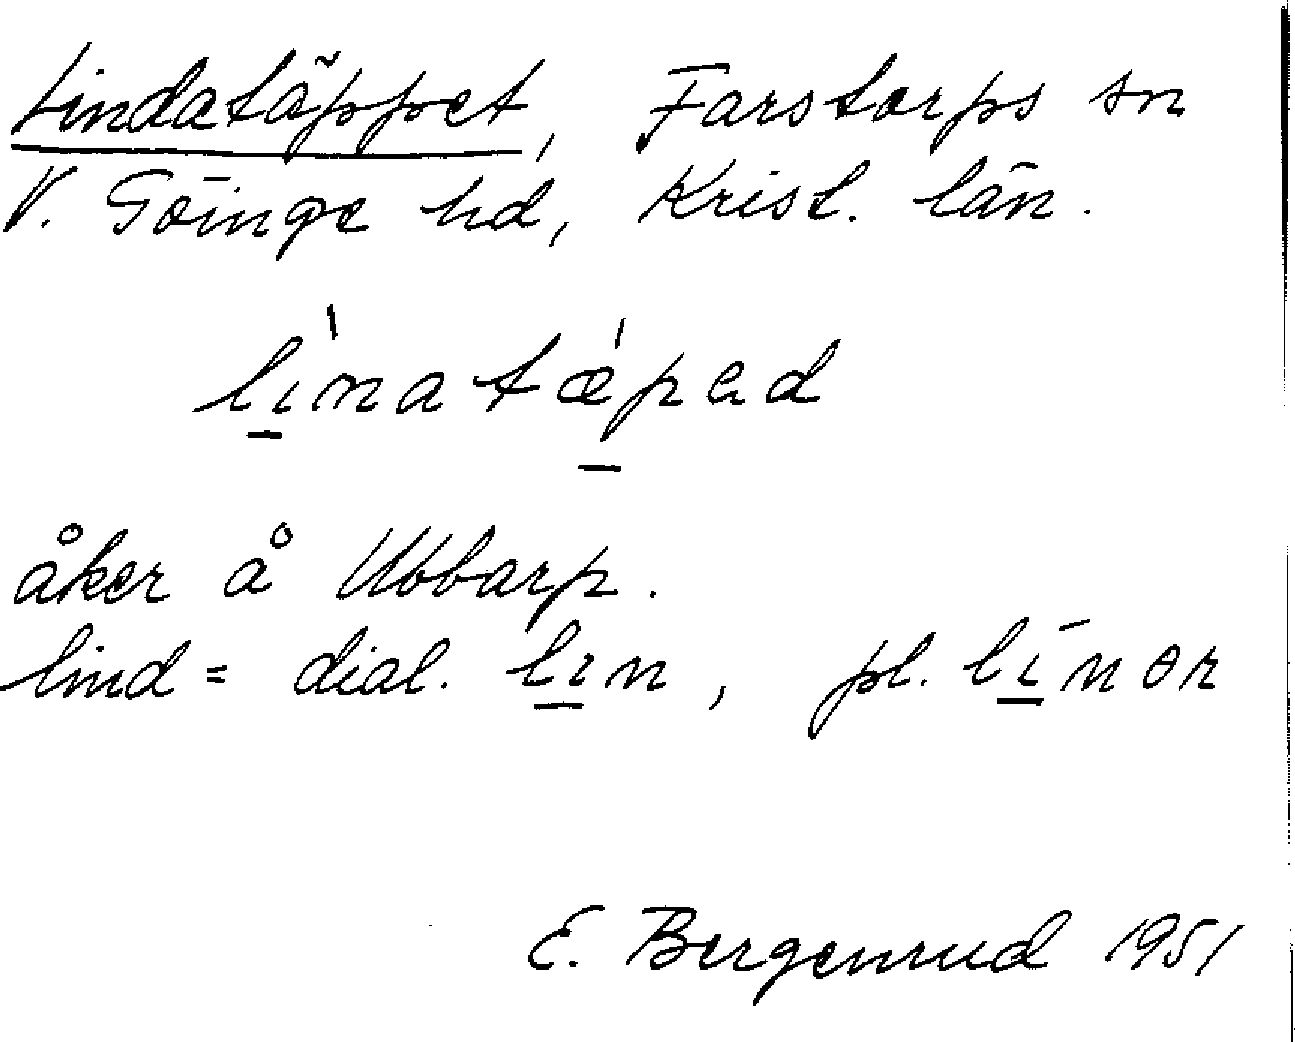 Lindatäppet, Farstorps sn
V. Göinge hd, Krist. län.
lı̱̀natǽ̱pəd
åker å Ubbarp.
lind = dial. lı̱n, pl. lı̱̄nər
E. Bergenrud 1951